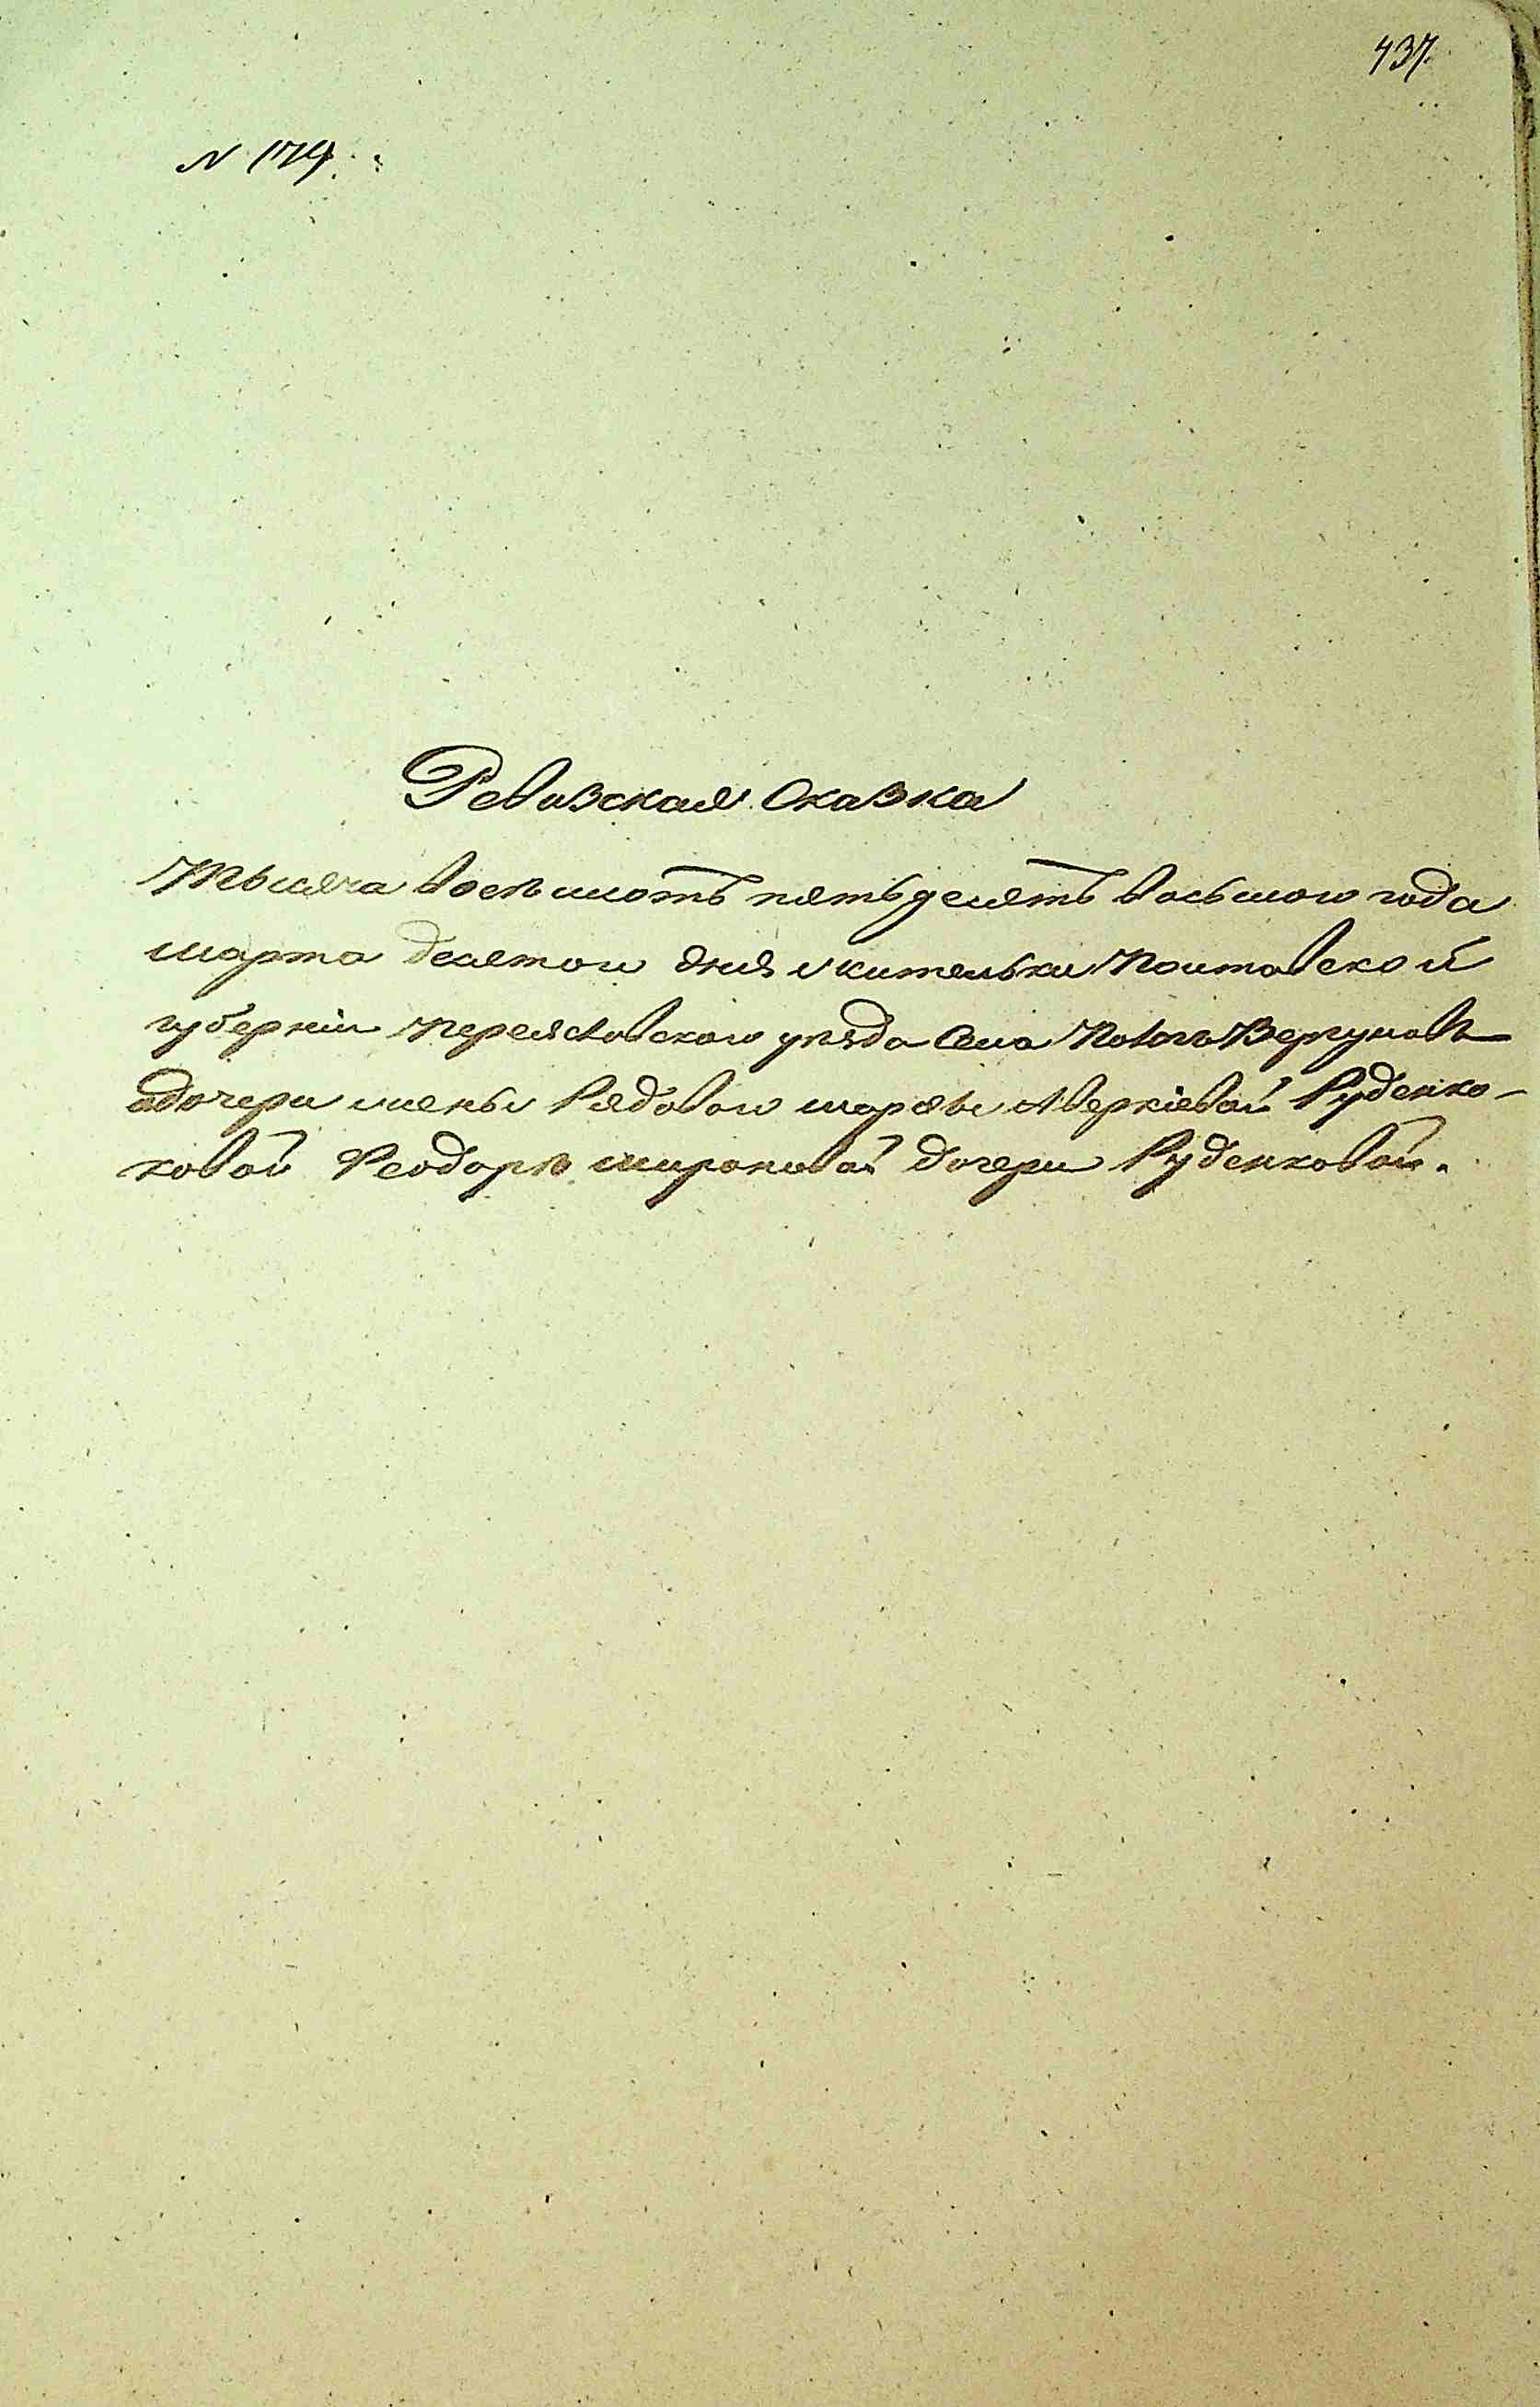 437.
N 174.
Ревизская Сказка
Тысяча восемьсотъ пятьдесятъ восьмого года
марта десятого дня жительки Полтавской
губерніи Переясловского уѣзда села
дочери жены Рядового марѳы Аверкіевой Руденко-
ковой Ѳеодорѣ мироновой дочери Руденковой.